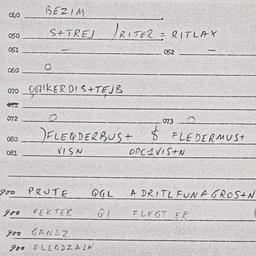 060 BEZIM
050 S+TREJ )RITER = RITLAX
051 — 052 —
060 O
070 OGIKERDIS+TEJB
072 O 073 O
080 )FLEQDERBUS+ $ FLEDERMUS+
081 VISN OPC1VIS+N
900 PRUTE QGL ADRITLFUNAGROS+N
900 FEKTER QI FLEGT ER
900 GANDZ
900 FLEDZAJN